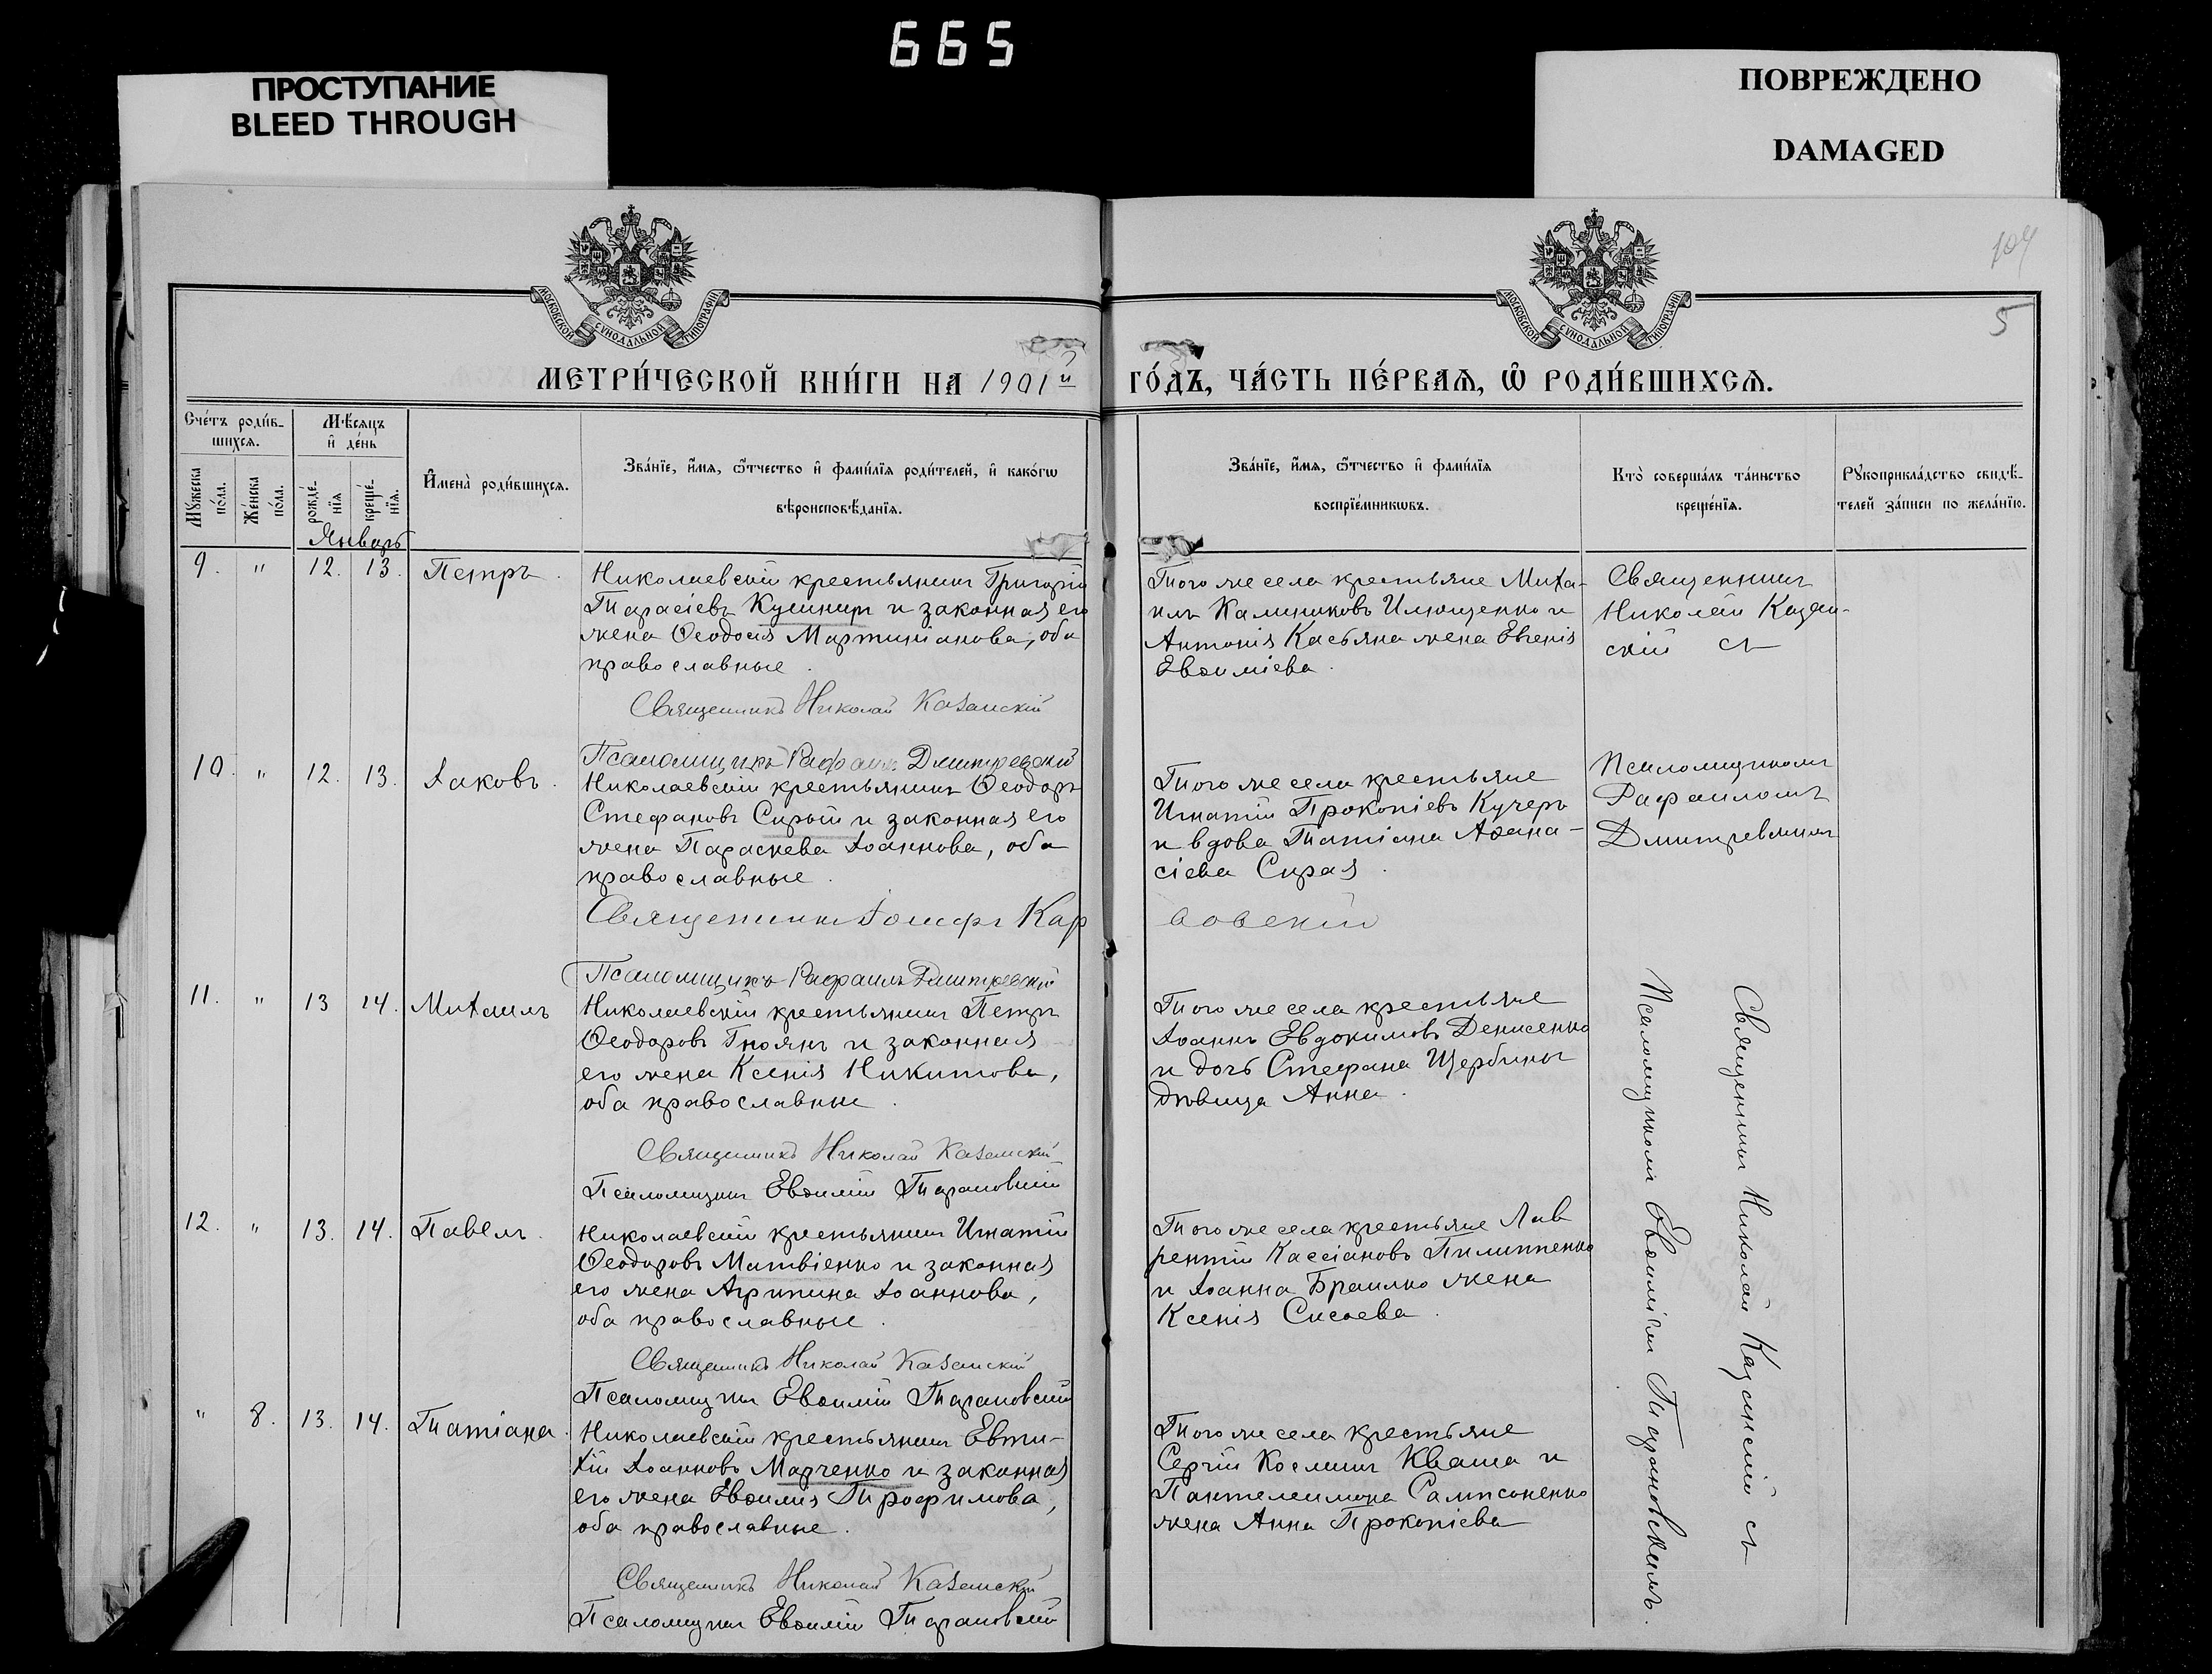 665
ПРОСТУПАНИЕ
BLEED THROUGH
ПОВРЕЖДЕНО
DAMAGED
104
5
МОСКОВСКОЙ СѴНОДАЛЬНОЙ ТИПОГРАФІИ
МОСКОВСКОЙ СѴНОДАЛЬНОЙ ТИПОГРАФІИ
МЕТРИ́ЧЕСКОЙ КНИ́ГИ НА 1901й ГО́ДЪ, ЧА́СТЬ ПЕ́РВАѦ, Ѽ РОДИ́ВШИХСѦ.
Счéтъ роди́в-
шихсѧ.
Мѣ́сѧцъ
и҆ дéнь
Мꙋжеска
пóла.
Жéнска
пóла.
рождé-
нїѧ
крещé-
нїѧ.
И҆менà роди́вшихсѧ.
Звáнїе, и҆́мѧ, ѻ҆́тчество и҆ фами́лїѧ роди́телей, и҆ какóгѡ
вѣроисповѣ́данїѧ.
Звáнїе, и҆́мѧ, ѻ҆́тчество и҆ фами́лїѧ
воспрїéмникѡвъ.
Ктò совершáлъ тáинство
крещéнїѧ.
Рꙋкоприклáдство свидѣ́-
телей зáписи по желáнїю.
Январь
9. " 12. 13. Петръ.
Николаевскій крестьянинъ Григорій
Тарасіевъ Кушниръ и законная его
жена Ѳеодосія Мартиніанова, оба
православные.
Священникъ Николай Казанскій
Псаломщикъ Рафаилъ Дмитревскій
Того же села крестьяне Миха-
илъ Калиниковъ Илющенко и
Антонія Касьяна жена Евгенія
Евѳиміева.
Священникъ
Николай Казан-
скій съ
10. " 12. 13. Іаковъ.
Николаевскій крестьянинъ Ѳеодоръ
Стефановъ Сирый и законная его
жена Параскева Іоаннова, оба
православные.
Священникъ Іосифъ Кар
Того же села крестьяне
Игнатій Прокопіевъ Кучеръ
и вдова Татіана Аѳана-
сіева Сирая.
Псаломщикомъ
Рафаиломъ
Дмитревскимъ
Псаломщикъ Рафаилъ Дмитревскій
11. " 13 14. Михаилъ
Николаевскій крестьянинъ Петръ
Ѳеодоровъ Гноянъ и законная
его жена Ксенія Никитова,
оба православные.
Священникъ Николай Казанскій
Псаломщикъ Евѳимій Тарановскій
Того же села крестьяне
Іоаннъ Евдокимовъ Денисенко
и дочь Стефана Щербины
дѣвица Анна.
12. " 13. 14. Павелъ.
Николаевскій крестьянинъ Игнатій
Ѳеодоровъ Матвіенко и законная
его жена Агрипина Іоаннова,
оба православные.
Священникъ Николай Казанскій
Псаломщикъ Евѳимій Тарановскій
Того же села крестьяне Лав
рентій Кассіановъ Пилипенко
и Іоанна Браилко жена
Ксенія Сисоева.
" 8. 13. 14. Татіана.
Николаевскій крестьянинъ Евти-
хій Іоанновъ Марченко и законная
его жена Евѳимія Трофимова,
оба православные.
Священникъ Николай Казанскій
Псаломщикъ Евѳимій Тарановскій
Того же села крестьяне
Сергій Косминъ Кваша и
Пантелеимона Сампсоненко
жена Анна Прокопіева
Священникъ Николай Казанскій съ
Псаломщикомъ Евѳиміемъ Тарановскимъ.